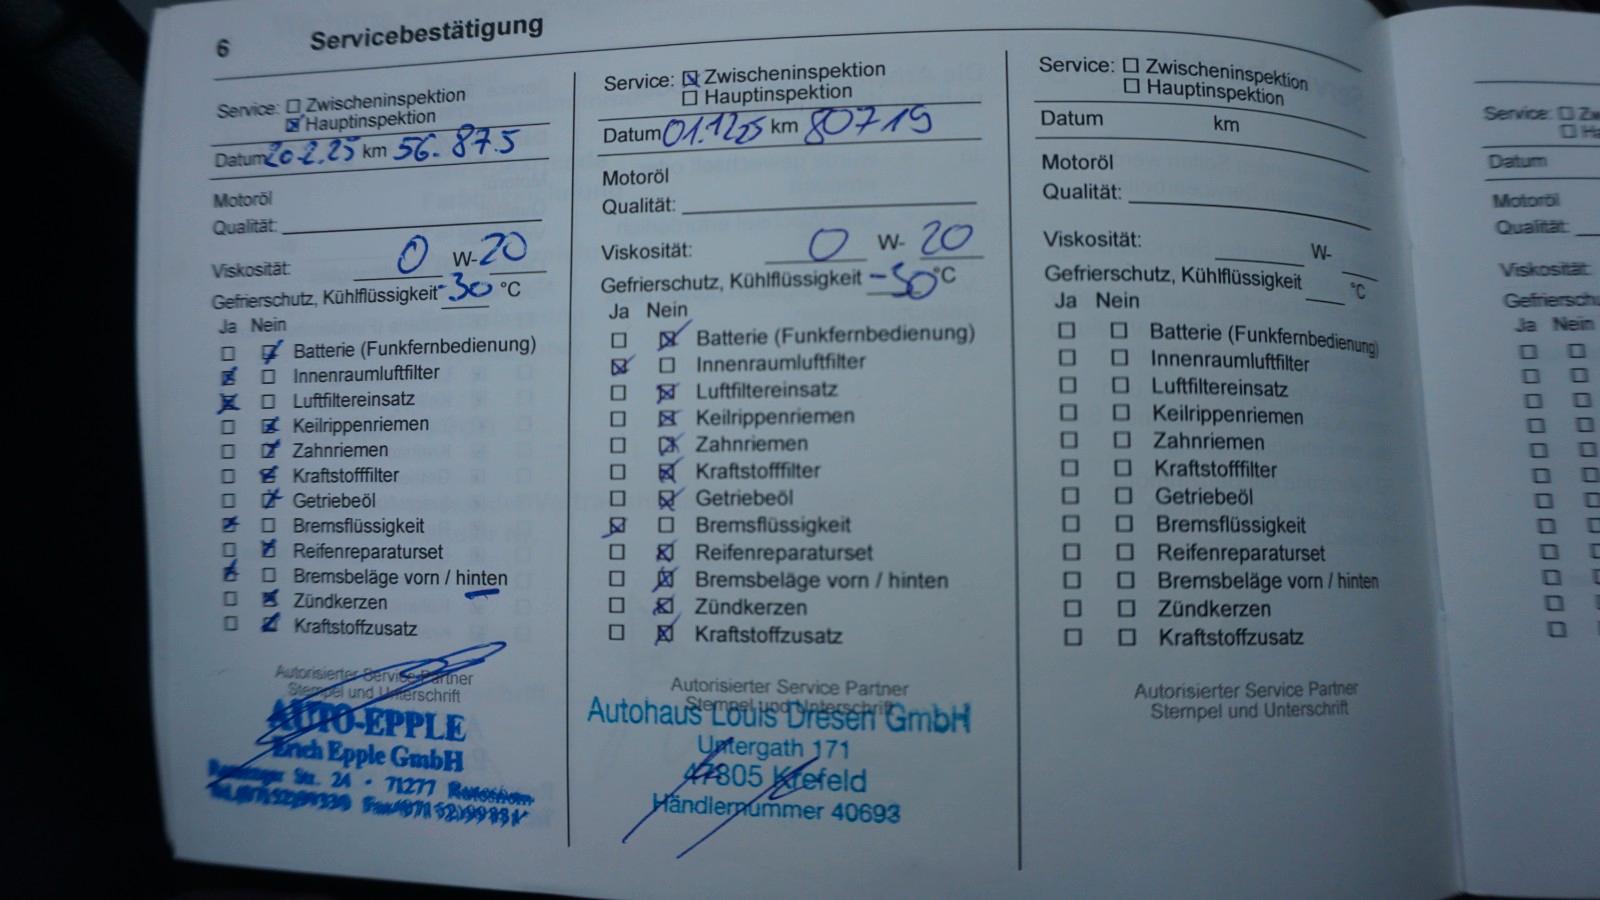 6 Servicebestätigung
Service: ☐ Zwischeninspektion
☒ Hauptinspektion
Datum 20.2.25 km 56.875
Motoröl
Qualität:
Viskosität: 0 W-20
Gefrierschutz, Kühlflüssigkeit -30 °C
Ja Nein
☐ ☒ Batterie (Funkfernbedienung)
☒ ☐ Innenraumluftfilter
☒ ☐ Luftfiltereinsatz
☐ ☒ Keilrippenriemen
☐ ☒ Zahnriemen
☐ ☒ Kraftstofffilter
☐ ☒ Getriebeöl
☒ ☐ Bremsflüssigkeit
☐ ☒ Reifenreparaturset
☒ ☐ Bremsbeläge vorn / hinten
☐ ☒ Zündkerzen
☐ ☒ Kraftstoffzusatz
Autorisierter Service Partner
Stempel und Unterschrift
AUTO-EPPLE
Erich Epple GmbH
Str. 24 · 71277
Service: ☒ Zwischeninspektion
☐ Hauptinspektion
Datum 01.12.25 km 80719
Motoröl
Qualität:
Viskosität: 0 W- 20
Gefrierschutz, Kühlflüssigkeit -30 °C
Ja Nein
☐ ☒ Batterie (Funkfernbedienung)
☒ ☐ Innenraumluftfilter
☐ ☒ Luftfiltereinsatz
☐ ☒ Keilrippenriemen
☐ ☒ Zahnriemen
☐ ☒ Kraftstofffilter
☐ ☒ Getriebeöl
☒ ☐ Bremsflüssigkeit
☐ ☒ Reifenreparaturset
☐ ☒ Bremsbeläge vorn / hinten
☐ ☒ Zündkerzen
☐ ☒ Kraftstoffzusatz
Autorisierter Service Partner
Stempel und Unterschrift
Autohaus Louis Dresen GmbH
Untergath 171
47805 Krefeld
Händlernummer 40693
Service: ☐ Zwischeninspektion
☐ Hauptinspektion
Datum km
Motoröl
Qualität:
Viskosität: W-
Gefrierschutz, Kühlflüssigkeit °C
Ja Nein
☐ ☐ Batterie (Funkfernbedienung)
☐ ☐ Innenraumluftfilter
☐ ☐ Luftfiltereinsatz
☐ ☐ Keilrippenriemen
☐ ☐ Zahnriemen
☐ ☐ Kraftstofffilter
☐ ☐ Getriebeöl
☐ ☐ Bremsflüssigkeit
☐ ☐ Reifenreparaturset
☐ ☐ Bremsbeläge vorn / hinten
☐ ☐ Zündkerzen
☐ ☐ Kraftstoffzusatz
Autorisierter Service Partner
Stempel und Unterschrift
Service: ☐ Zw
☐ Ha
Datum
Motoröl
Qualität:
Viskosität:
Gefrierschu
Ja Nein